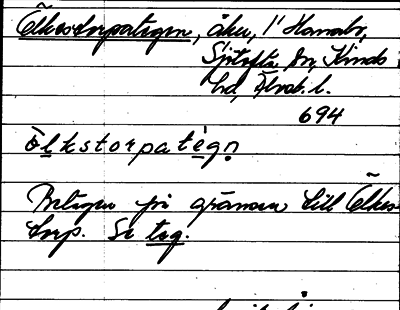 Ölkestorpategen, åker, 1' Hanabo,
Sjötofta sn, Kinds
hd, Älvsb. l.
694
ö̀lkstorpatègn
Belägen på gränsen till Ölkes-
torp. Se teg.